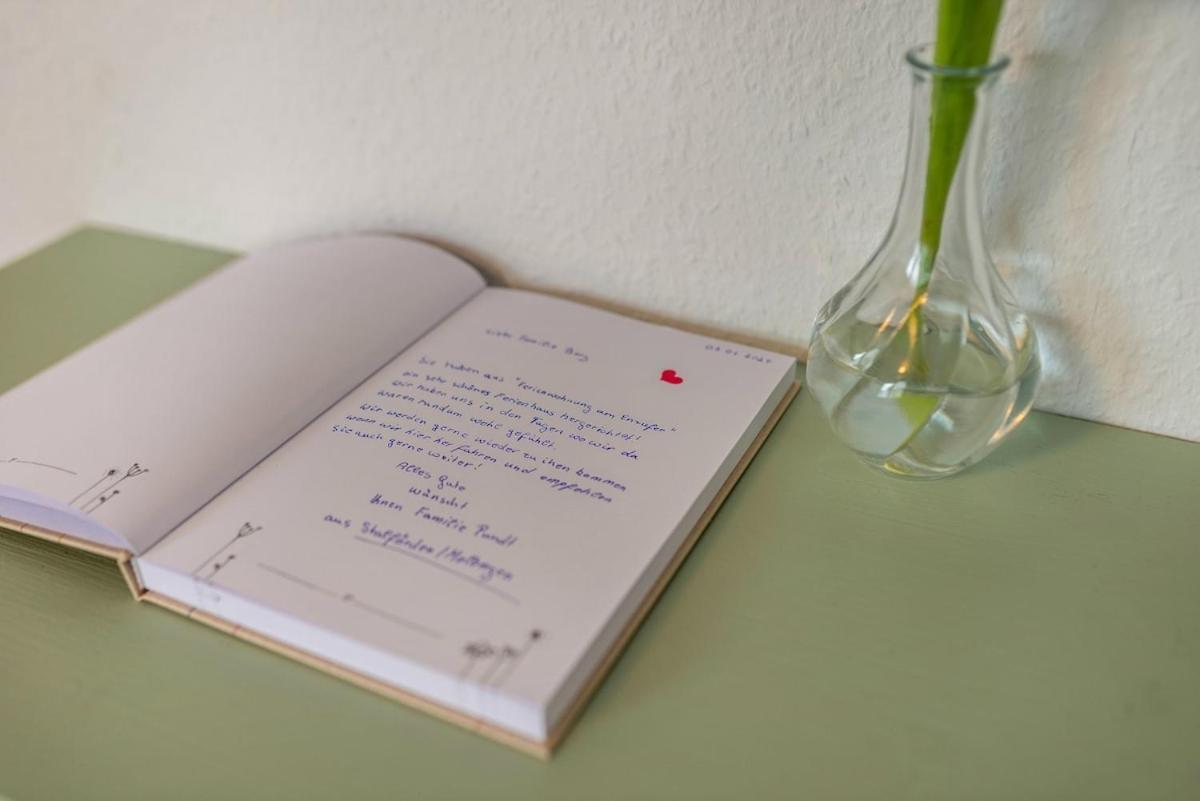 Liebe Familie Berg
Sie haben aus "Ferienwohnung am Ensufer"
ein sehr schönes Ferienhaus hergerichtet!
Wir haben uns in den Tagen wo wir da
waren rundum wohl gefühlt.
Wir werden gerne wieder zu ihnen kommen
wenn wir hier her fahren und empfehlen
Sie auch gerne weiter!
Alles Gute
wünscht
Ihnen Familie
aus